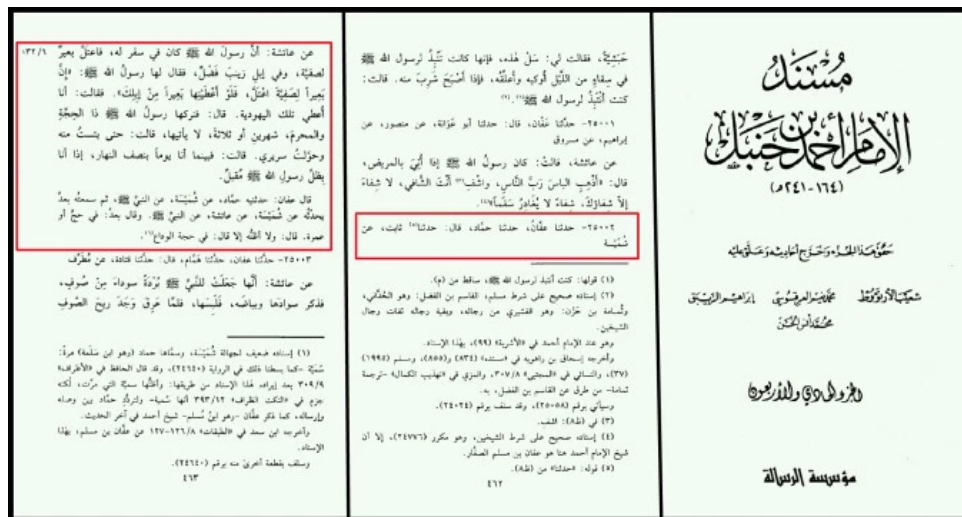 مُسْنَدُ
الإمام أحمد بن حنبل
(١٦٤-٢٤١هـ)
حقّق هذا الجزء وخرّج أحاديثه وعلّق عليه
شعيب الأرنؤوط محمد نعيم العرقسوسي إبراهيم الزيبق
محمد أنس الخن
الجزء الحادي والأربعون
مؤسسة الرسالة
حَبَشِيَّةٌ، فقالت لي: سَلْ هٰذه، فإنها كانت تَنْبِذُ لرسول الله ﷺ
في سِقاءٍ من اللَّيْل أُوكيه وأُعلِّقُه، فإذا أَصْبَحَ شَرِبَ منه. قالت:
كنت أَنْتَبِذُ لرسول الله ﷺ(١). (٢)
٢٥٠٠١- حدَّثنا عَفَّان، قال: حدثنا أبو عَوَانة، عن منصور، عن
إبراهيم، عن مسروق
عن عائشة، قالتْ: كان رسولُ الله ﷺ إذا أُتِيَ بالمريض،
قال: «أَذْهِبِ الباسَ رَبَّ النَّاسِ، واشْفِ(٣) أَنْتَ الشَّافي، لا شِفاءَ
إلاَّ شِفاؤكَ، شِفاءً لا يُغَادِرُ سَقَماً»(٤).
٢٥٠٠٢- حدثنا عفَّانُ، حدثنا حمَّاد، قال: حدثنا(٥) ثابت، عن
شُمَيْسَة
(١) قولها: كنت أنتبذ لرسول الله ﷺ، ساقط من (م).
(٢) إسناده صحيح على شرط مسلم، القاسم بن الفضل: وهو الحُدَّاني،
وثُمامة بن حَزْن: وهو القشيري من رجاله، وبقية رجاله ثقات رجال
الشيخين.
وهو عند الإمام أحمد في «الأشربة» (٩٩)، بهٰذا الإسناد.
وأخرجه إسحاق بن راهويه في «مسنده» (٨٣٤) و(٨٥٥)، ومسلم (١٩٩٥)
(٣٧)، والنسائي في «المجتبى» ٣٠٧/٨، والمزي في «تهذيب الكمال» -ترجمة
ثمامة- من طرق عن القاسم بن الفضل، به.
وسيأتي برقم (٢٥٠٥٨)، وقد سلف برقم (٢٤٠٢٤).
(٣) في (ظ٨): اشف.
(٤) إسناده صحيح على شرط الشيخين، وهو مكرر (٢٤٧٧٦)، إلا أن
شيخ الإمام أحمد هنا هو عفان بن مسلم الصفَّار.
(٥) قوله: «حدثنا» من (ظ٨).
٤٦٢
عن عائشة: أنَّ رسولَ الله ﷺ كان في سفر له، فاعتلَّ بعيرٌ ١٣٢/٦
لصفيَّة، وفي إبلِ زينبَ فَضْلٌ، فقال لها رسولُ الله ﷺ: «إنَّ
بَعِيراً لِصَفِيَّةَ اعْتَلَّ، فَلَوْ أَعْطَيْتِها بَعِيراً مِنْ إبِلِكِ». فقالت: أنا
أُعطي تلك اليهودية. قال: فتركها رسولُ الله ﷺ ذا الحِجَّةِ
والمحرمَ، شهرين أو ثلاثةً، لا يأتيها، قالت: حتى يئستُ منه
وحوَّلتُ سريري. قالت: فبينما أنا يوماً بنصف النهار، إذا أنا
بِظِلِّ رسولِ الله ﷺ مُقبلٌ.
قال عفان: حدثنيه حمَّاد، عن شُمَيْسَة، عن النبيِّ ﷺ، ثم سمعتُه بعدُ
يحدثُه عن شُمَيْسَة، عن عائشة، عن النبيِّ ﷺ. وقال بعدُ: في حجٍّ أو
عمرة. قال: ولا أظنُّه إلا قال: في حجة الوداع(١).
٢٥٠٠٣- حدَّثنا عفان، حدَّثنا هَمَّام، قال: حدَّثنا قتادة، عن مُطَرِّف
عن عائشة: أَنَّها جَعَلَتْ للنَّبيِّ ﷺ بُرْدَةً سوداءَ مِنْ صُوفٍ،
فذكر سوادَها وبياضَه، فَلَبِسَها، فلمَّا عَرِقَ وَجَدَ ريحَ الصُّوفِ
(١) إسناده ضعيف لجهالة شُمَيْسَة، وسمَّاها حماد (وهو ابن سَلَمة) مرة:
سُمَيَّة -كما بسطنا ذلك في الرواية (٢٤٦٤٠)، وقد قال الحافظ في «الأطراف»
٣٠٩/٩ بعد إيراده هٰذا الإسناد من طريقها: وأظنُّها سميَّة التي مرَّت، لٰكنه
جزم في «النكت الظراف» ٣٩٣/١٢ أنها سُمية- ولتردُّدِ حمَّاد بين وصله
وإرساله، كما ذكر عفَّان -وهو ابنُ مُسلم- شيخ أحمد في آخر الحديث.
وأخرجه ابن سعد في «الطبقات» ١٢٦/٨-١٢٧ عن عفَّان بن مسلم، بهٰذا
الإسناد.
وسلف بقطعة أخرىٰ منه برقم (٢٤٦٤٠).
٤٦٣